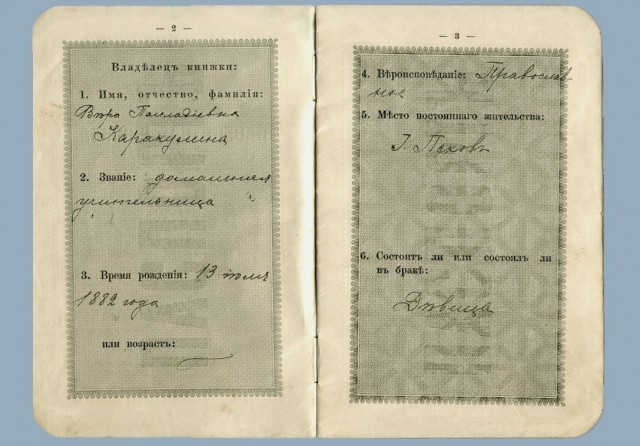 — 2 —
Владѣлецъ книжки:
1. Имя, отчество, фамилія:
Вѣра Палладіевна
Каракулина
2. Званіе: домашняя
учительница
3. Время рожденія: 13 іюля
1882 года
или возрастъ:
— 3 —
4. Вѣроисповѣданіе: Православ-
ное
5. Мѣсто постояннаго жительства:
Г. Псковъ
6. Состоитъ ли или состоялъ ли
въ бракѣ:
Дѣвица